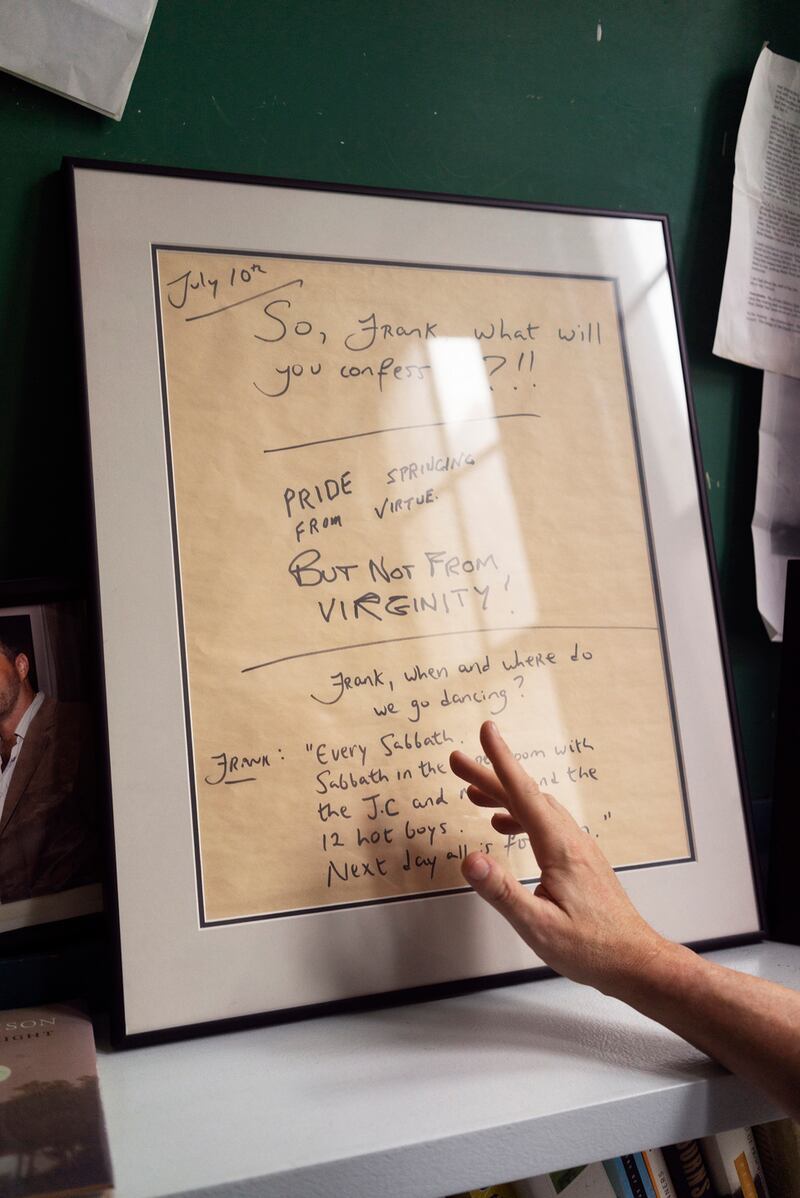 July 10th
So, Frank what will
you confess ?!!
PRIDE SPRINGING
FROM VIRTUE.
BUT NOT FROM
VIRGINITY!
Frank, when and where do
we go dancing?
FRANK: "Every Sabbath.
Sabbath in the room with
the J.C and and the
12 hot boys.
Next day all is ."
SON
IGHT